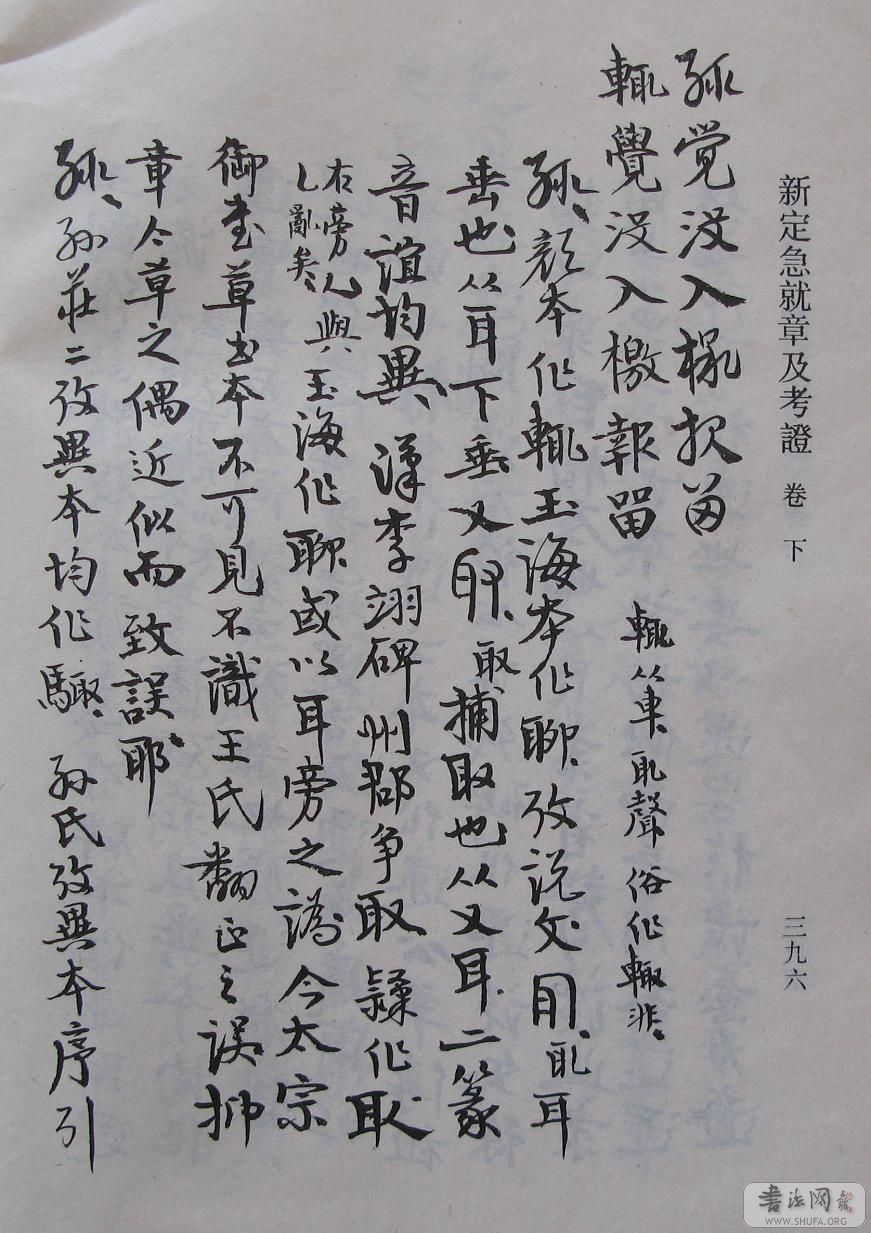 新定急就章及考證 卷下
三九六
輒覺没入檄報留
輒覺没入檄報留 輒从車耴聲俗作輙非
輒顏本作輒玉海本作聊攷説文耴耴耳
垂也从耳下垂又取取捕取也从又耳二篆
音誼均異漢李翊碑州郡争取隸作耴
右旁
乚亂矣
與玉海作聊或以耳旁之譌今太宗
御書草書本不可見不識王氏翻正之誤抑
章今草之偶近似而致誤耶
輒孙莊二攷異本均作驟孙氏攷異本序引
書法网
WWW.SHUFA.ORG